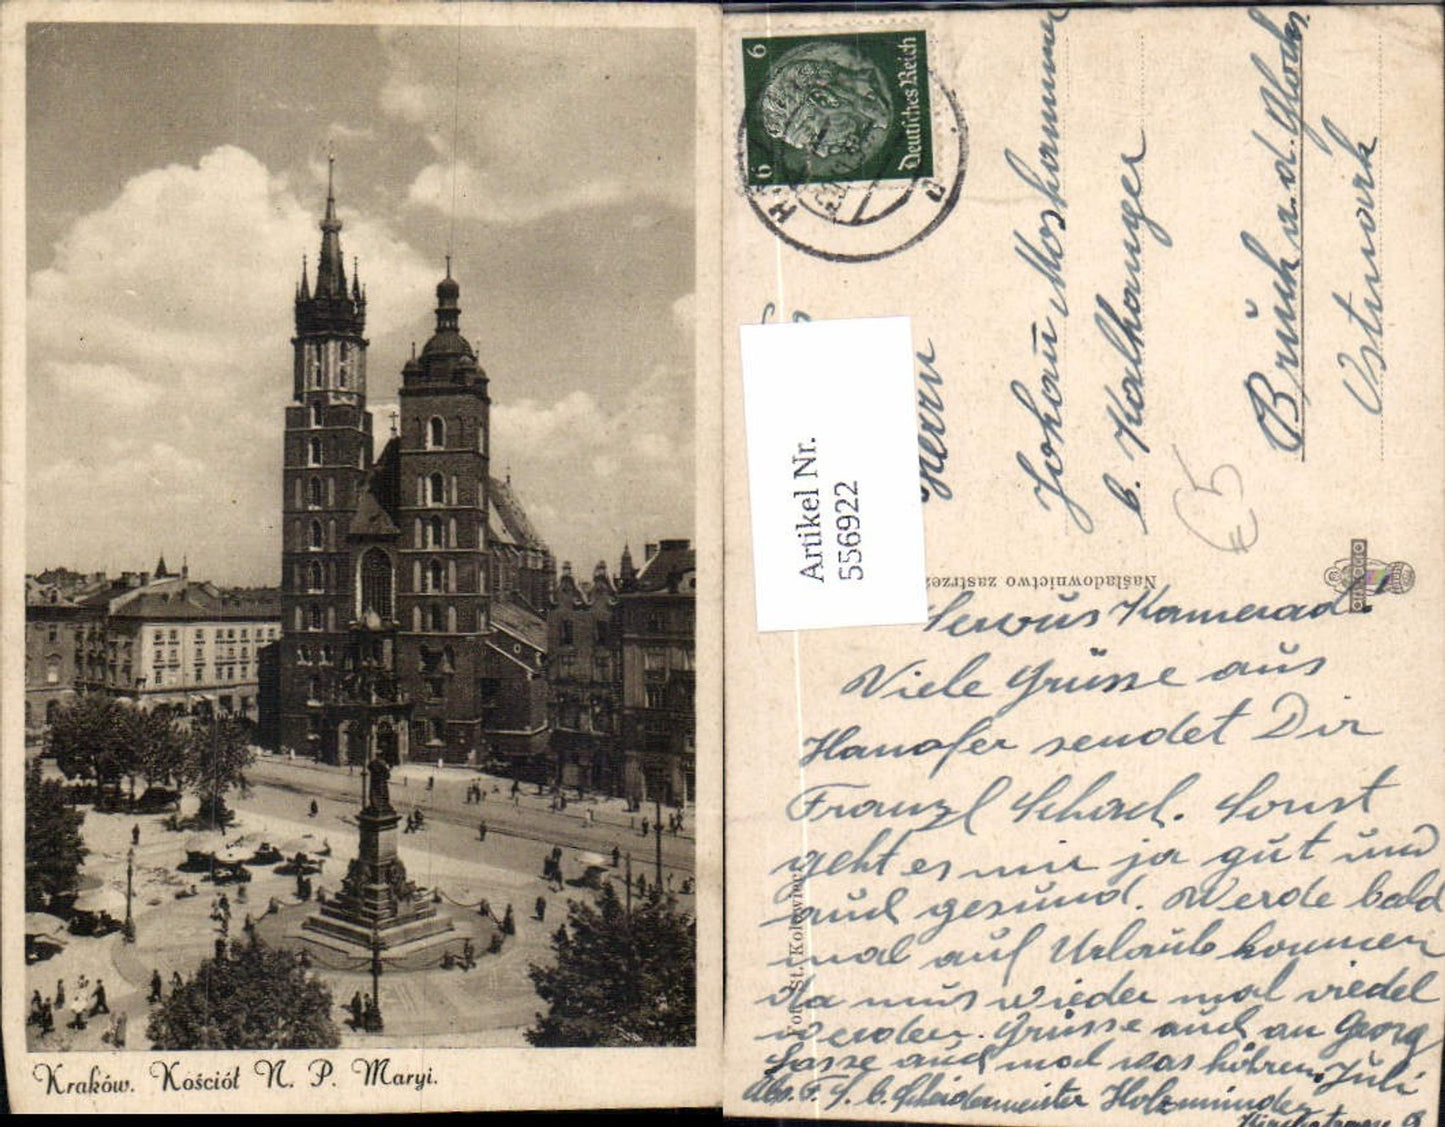 Kraków. Kościół N. P. Maryi.
6
6
Deutsches Reich
Artikel Nr.
556922
Herrn
Johann Moshammer
b. Kalhanger
Bruck a. d. Glock
Ostmark
€5
Naśladownictwo zastrze
Fot. St. Kolowiec
Servus Kamerad.
Viele Grüsse aus
sendet Dir
Franzl Schach. Sonst
geht es mir ja gut und
auch gesund. Werde bald
mal auf Urlaub kommen
da mus wieder mal
werden. Grüsse auch an Georg
Lasse auch mal was hören. Juli
Abs. F. S. b. Scheidermeister Holzminden